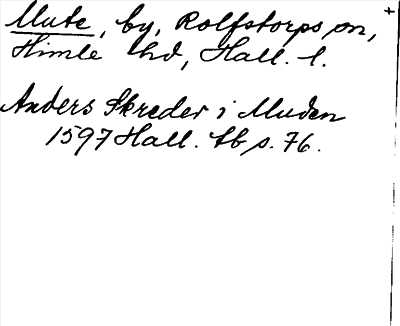 Mute, by, Rolfstorps sn,
Himle hd, Hall. l.
Anders Skreder i Muden
1597 Hall. tb s. 76.